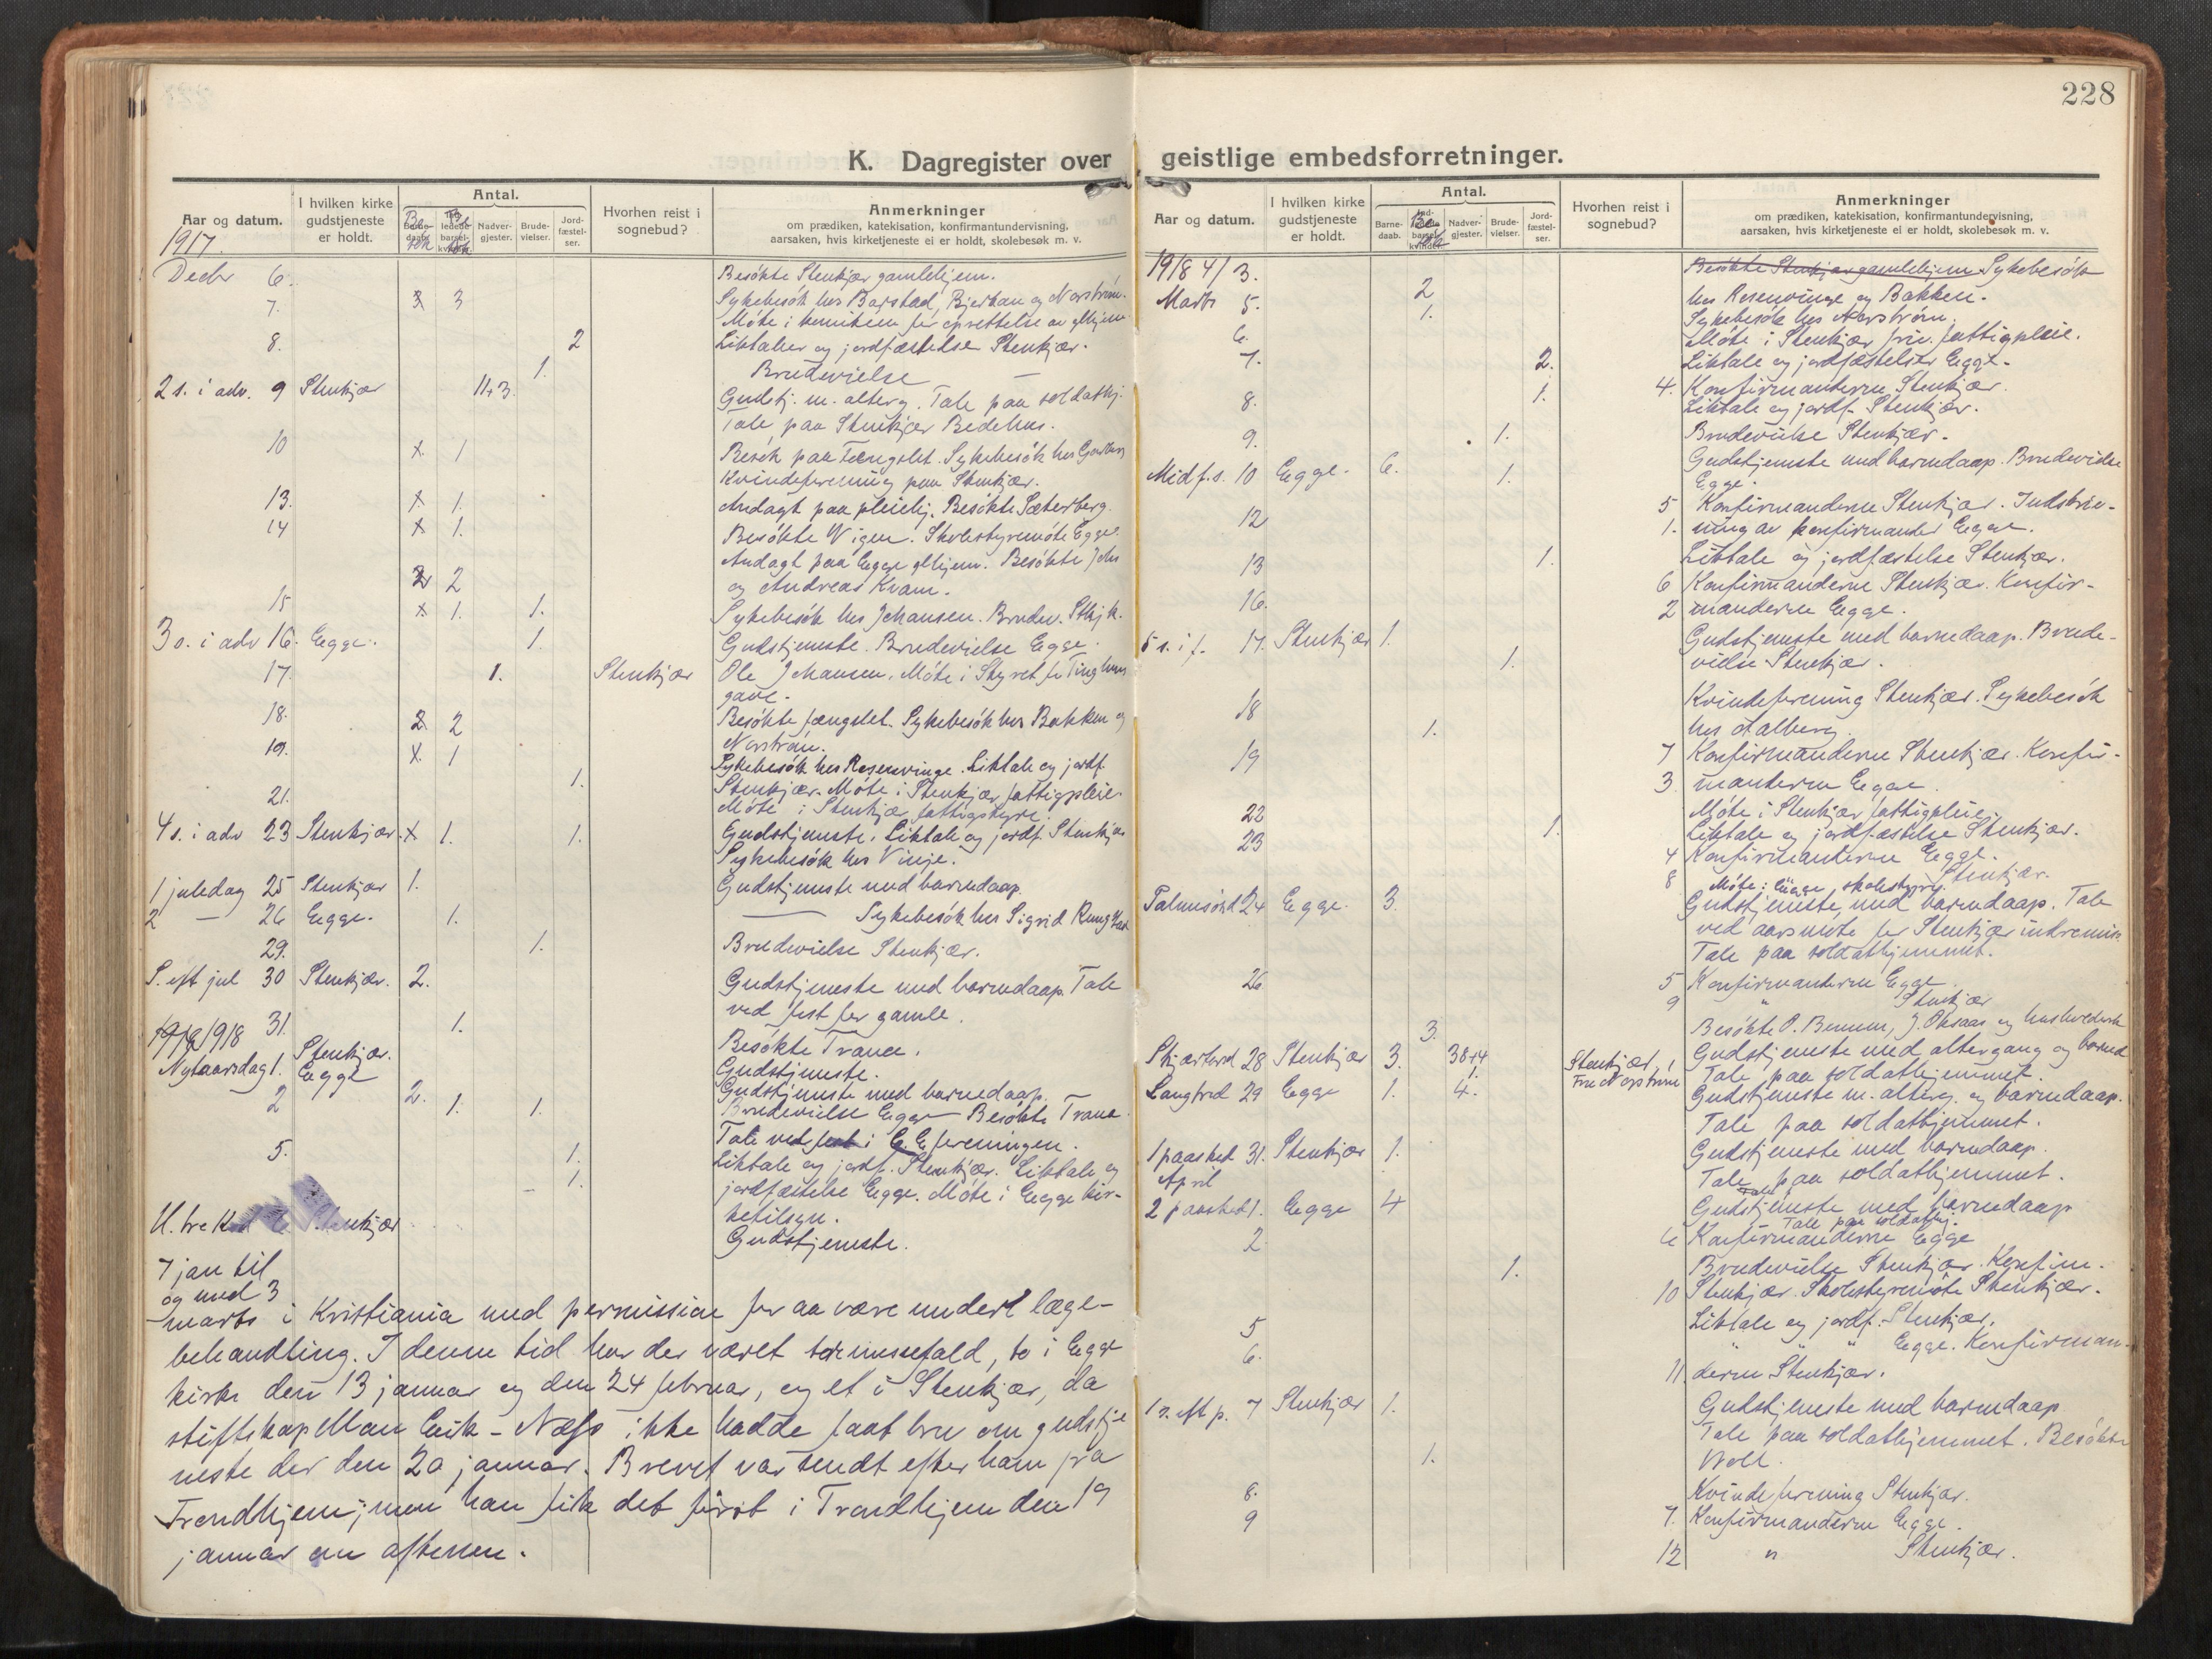 228
K. Dagregister over geistlige embedsforretninger.
Aar og datum.
I hvilken kirke gudstjeneste er holdt.
Antal.
Nadver-gjester.
Brude-vielser.
Jord-fæstel-ser.
Hvorhen reist i sognebud?
Anmerkninger
om prædiken, katekisation, konfirmantundervisning,
aarsaken, hvis kirketjeneste ei er holdt, skolebesøk m. v.
1917.
Decbr 6. Besökte Stenkjær gamlehjem.
7. 3 Sykebesök hos Barstad, Bjerkan og Norström.
Möte i komiteen for oprettelse av glhjem
8. 2 Liktaler og jordfæstelse Stenkjær.
1. Brudevielse —
2 s. i adv. 9 Stenkjær 11+3. Gudstj. m. alterg. Tale paa soldathj.
Tale paa Stenkjær Bedehus.
10 x 1 Besök paa Fængslet. Sykebesök hos
Kvindeforening paa Stenkjær.
13. x 1. Andagt paa pleiehj. Besökte Sæterberg.
14 x 1. Besökte Wigen. Skolestyremöte Egge.
Andagt paa Egge glhjem. Besökte Johs
2 2 og Andreas Kvam.
15 x 1. 1. Sykebesök hos Johansen. Brudev. Stkj k.
3 s. i adv 16. Egge. 1. Gudstjeneste. Brudevielse Egge.
17. 1. Stenkjær Ole Johansen. Möte i Styret for Tinghus
gave.
18. 2. 2 Besökte fængslet. Sykebesök hos Bakken og
Norström.
19. x. 1 Sykebesök hos Rosenvinge. Liktale og jordf.
1. Stenkjær. Möte i Stenkjær fattigpleie.
21. Möte i Stenkjær fattigstyre.
4 s. i adv 23 Stenkjær. x 1. 1. Gudstjeneste. Liktale og jordf. Stenkjær
Sykebesök hos Vinje.
1 juledag 25 Stenkjær 1. Gudstjeneste med barnedaap.
2 — 26 Egge. 1. —— Sykebesök hos Sigrid
29. 1. Brudevielse Stenkjær.
S. eft jul 30 Stenkjær. 2. Gudstjeneste med barnedaap. Tale
ved fest for gamle.
31. 1. Besökte Trana.
1918 Stenkjær. Gudstjeneste.
Nytaarsdag 1. Egge 2. Gudstjeneste med barnedaap.
2 1. 1. Brudevielse Egge Besökte Trana.
Tale ved fest i foreningen.
5. 1. Liktale og jordf. Stenkjær. Liktale og
1. jordfæstelse Egge. Möte i Egge kir-
ketilsyn.
H. tre Stenkjær Gudstjeneste.
7 jan til
og med 3
marts i Kristiania med permission for aa være under læge-
behandling. I denne tid har der været tre messefald, to i Egge
kirke den 13 januar og den 24 februar, og et i Stenkjær, da
stiftskapellan Eeik-Næss ikke hadde faat brev om gudstje
neste der den 20 januar. Brevet var sendt efter ham fra
Trondhjem; men han fik det först i Trondhjem den 19
januar om aftenen.
Aar og datum.
I hvilken kirke gudstjeneste er holdt.
Antal.
Barne-daab.
Nadver-gjester.
Brude-vielser.
Jord-fæstel-ser.
Hvorhen reist i sognebud?
Anmerkninger
om prædiken, katekisation, konfirmantundervisning,
aarsaken, hvis kirketjeneste ei er holdt, skolebesøk m. v.
1918 4/3. Besökte Stenkjær gamlehjem Sykebesök
2 hos Rosenvinge og Bakken.
Marts 5. 1. Sykebesök hos Norström.
6. Möte i Stenkjær friv. fattigpleie.
7. 2. Liktale og jordfæstelser Egge.
4. Konfirmanterne Stenkjær.
8. 1. Liktale og jordf. Stenkjær.
9. 1. Brudevielse Stenkjær.
Midf.s. 10 Egge. 6. 1. Gudstjeneste med barnedaap. Brudevielse
Egge.
12 5 Konfirmanderne Stenkjær. Indskriv-
1. ning av konfirmander Egge.
13 1. Liktale og jordfæstelse Stenkjær.
6 Konfirmanderne Stenkjær. Konfir-
16. 2 manderne Egge.
5 s. i f. 17. Stenkjær 1. Gudstjeneste med barnedaap. Brude-
1. vielse Stenkjær.
18 Kvindeforening Stenkjær. Sykebesök
1. hos Aalberg.
19 7 Konfirmanderne Stenkjær. Konfir-
3. manderne Egge.
22 Möte i Stenkjær fattigpleie.
23 1. Liktale og jordfæstelse Stenkjær.
4 Konfirmanterne Egge.
8 Stenkjær.
Möte i Egge skolestyre.
Palmesönd 24 Egge. 3. Gudstjeneste med barnedaap. Tale
ved aarsmöte for Stenkjær indremis.
Tale paa soldathjemmet.
26 5 Konfirmanterne Egge.
9 " Stenkjær
3. Besökte P. Bennum, J. Oksaas og
Skjærtorsd 28 Stenkjær 3. 38+4 Stenkjær, Gudstjeneste med altergang og barned
1. Fru Norström Tale paa soldathjemmet.
Langfred 29 Egge 1. 4. Gudstjeneste m. alterg. og barnedaap.
Tale paa soldathjemmet.
1 paasked 31. Stenkjær 1. Gudstjeneste med barnedaap.
April Tale paa soldathjemmet.
2 paasked 1. Egge 4 Gudstjeneste med barnedaap
Tale paa soldathj.
2 6 Konfirmanderne Egge
1. Brudevielse Stenkjær. Konfirm.
10 Stenkjær. Skolestyremöte Stenkjær.
5 Liktale og jordf. Stenkjær.
6. " " " Egge. Konfirman-
11 derne Stenkjær.
1 s. eft p. 7 Stenkjær 1. Gudstjeneste med barnedaap
Tale paa soldathjemmet. Besökte
1. Woll.
8. Kvindeforening Stenkjær.
9 7. Konfirmanderne Egge.
12 " Stenkjær.